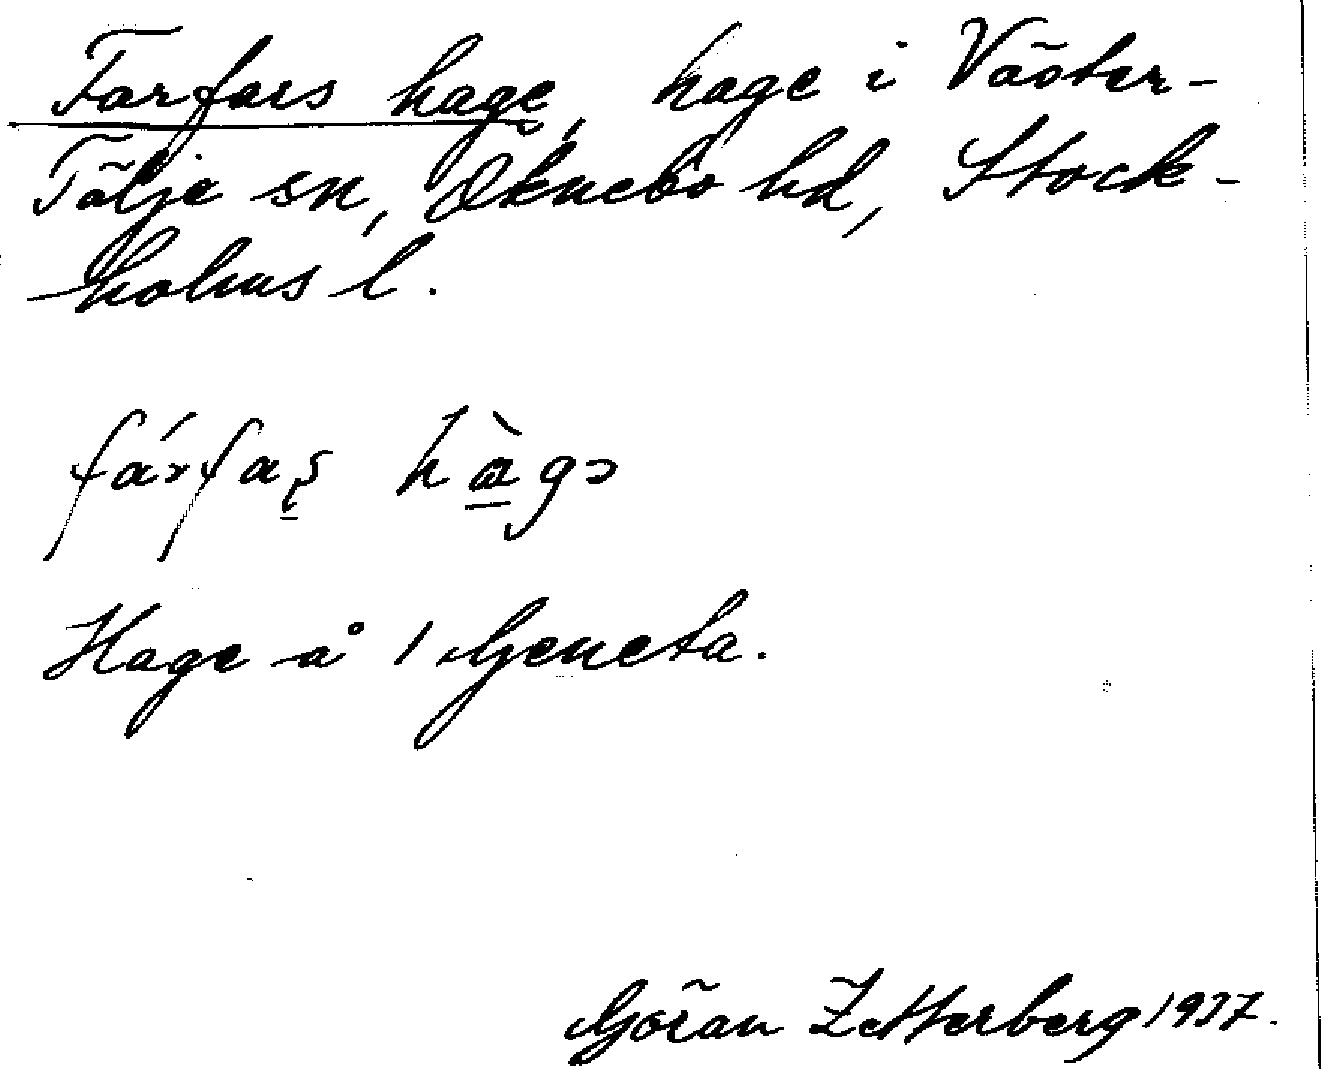 Farfars hage, hage i Väster-
Tälje sn, Öknebo hd, Stock-
holms l.
fárfaş hàgɔ
Hage å 1 Geneta.
Göran Zetterberg 1937.